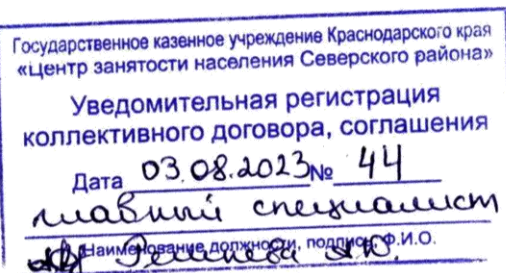 Государственное казенное учреждение Краснодарского края
«Центр занятости населения Северского района»
Уведомительная регистрация
коллективного договора, соглашения
Дата 03.08.2023 № 44
главный специалист
Наименование должности, подпись, Ф.И.О.